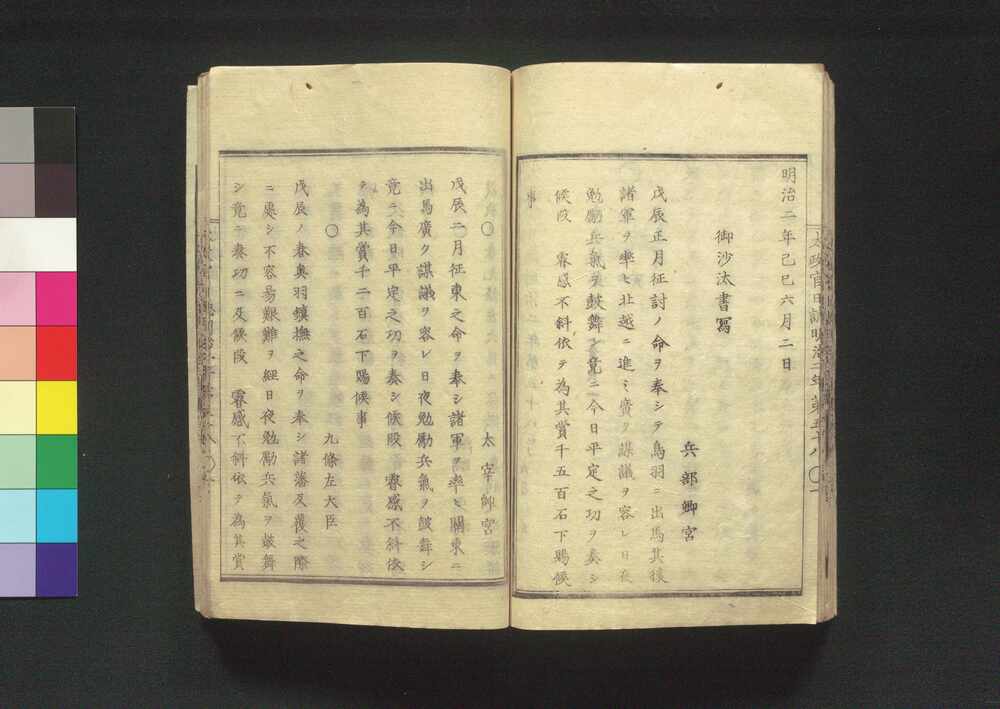 明治二年己巳六月二日
御沙汰書寫
兵部卿宮
戊辰正月征討ノ命ヲ奉シテ鳥羽ニ出馬其後
諸軍ヲ率ヒ北越ニ進ミ廣ク謀議ヲ容レ日夜
勉勵兵氣ヲ鼓舞シ竟ニ今日平定之功ヲ奏シ
候段 睿感不斜依テ為其賞千五百石下賜候
事
太宰帥宮
戊辰二月征東之命ヲ奉シ諸軍ヲ率ヒ關東ニ
出馬廣ク謀議ヲ容レ日夜勉勵兵氣ヲ皷舞シ
竟ニ今日平定之功ヲ奏シ候段 睿感不斜依
テ為其賞千二百石下賜候事
〇
九條左大臣
戊辰ノ春奥羽鎮撫之命ヲ奉シ諸藩反覆之際
ニ處シ不容易艱難ヲ經日夜勉勵兵氣ヲ皷舞
シ竟ニ奏功ニ及候段 睿感不斜依テ為其賞
太政官日誌明治二年第五十八 〇一